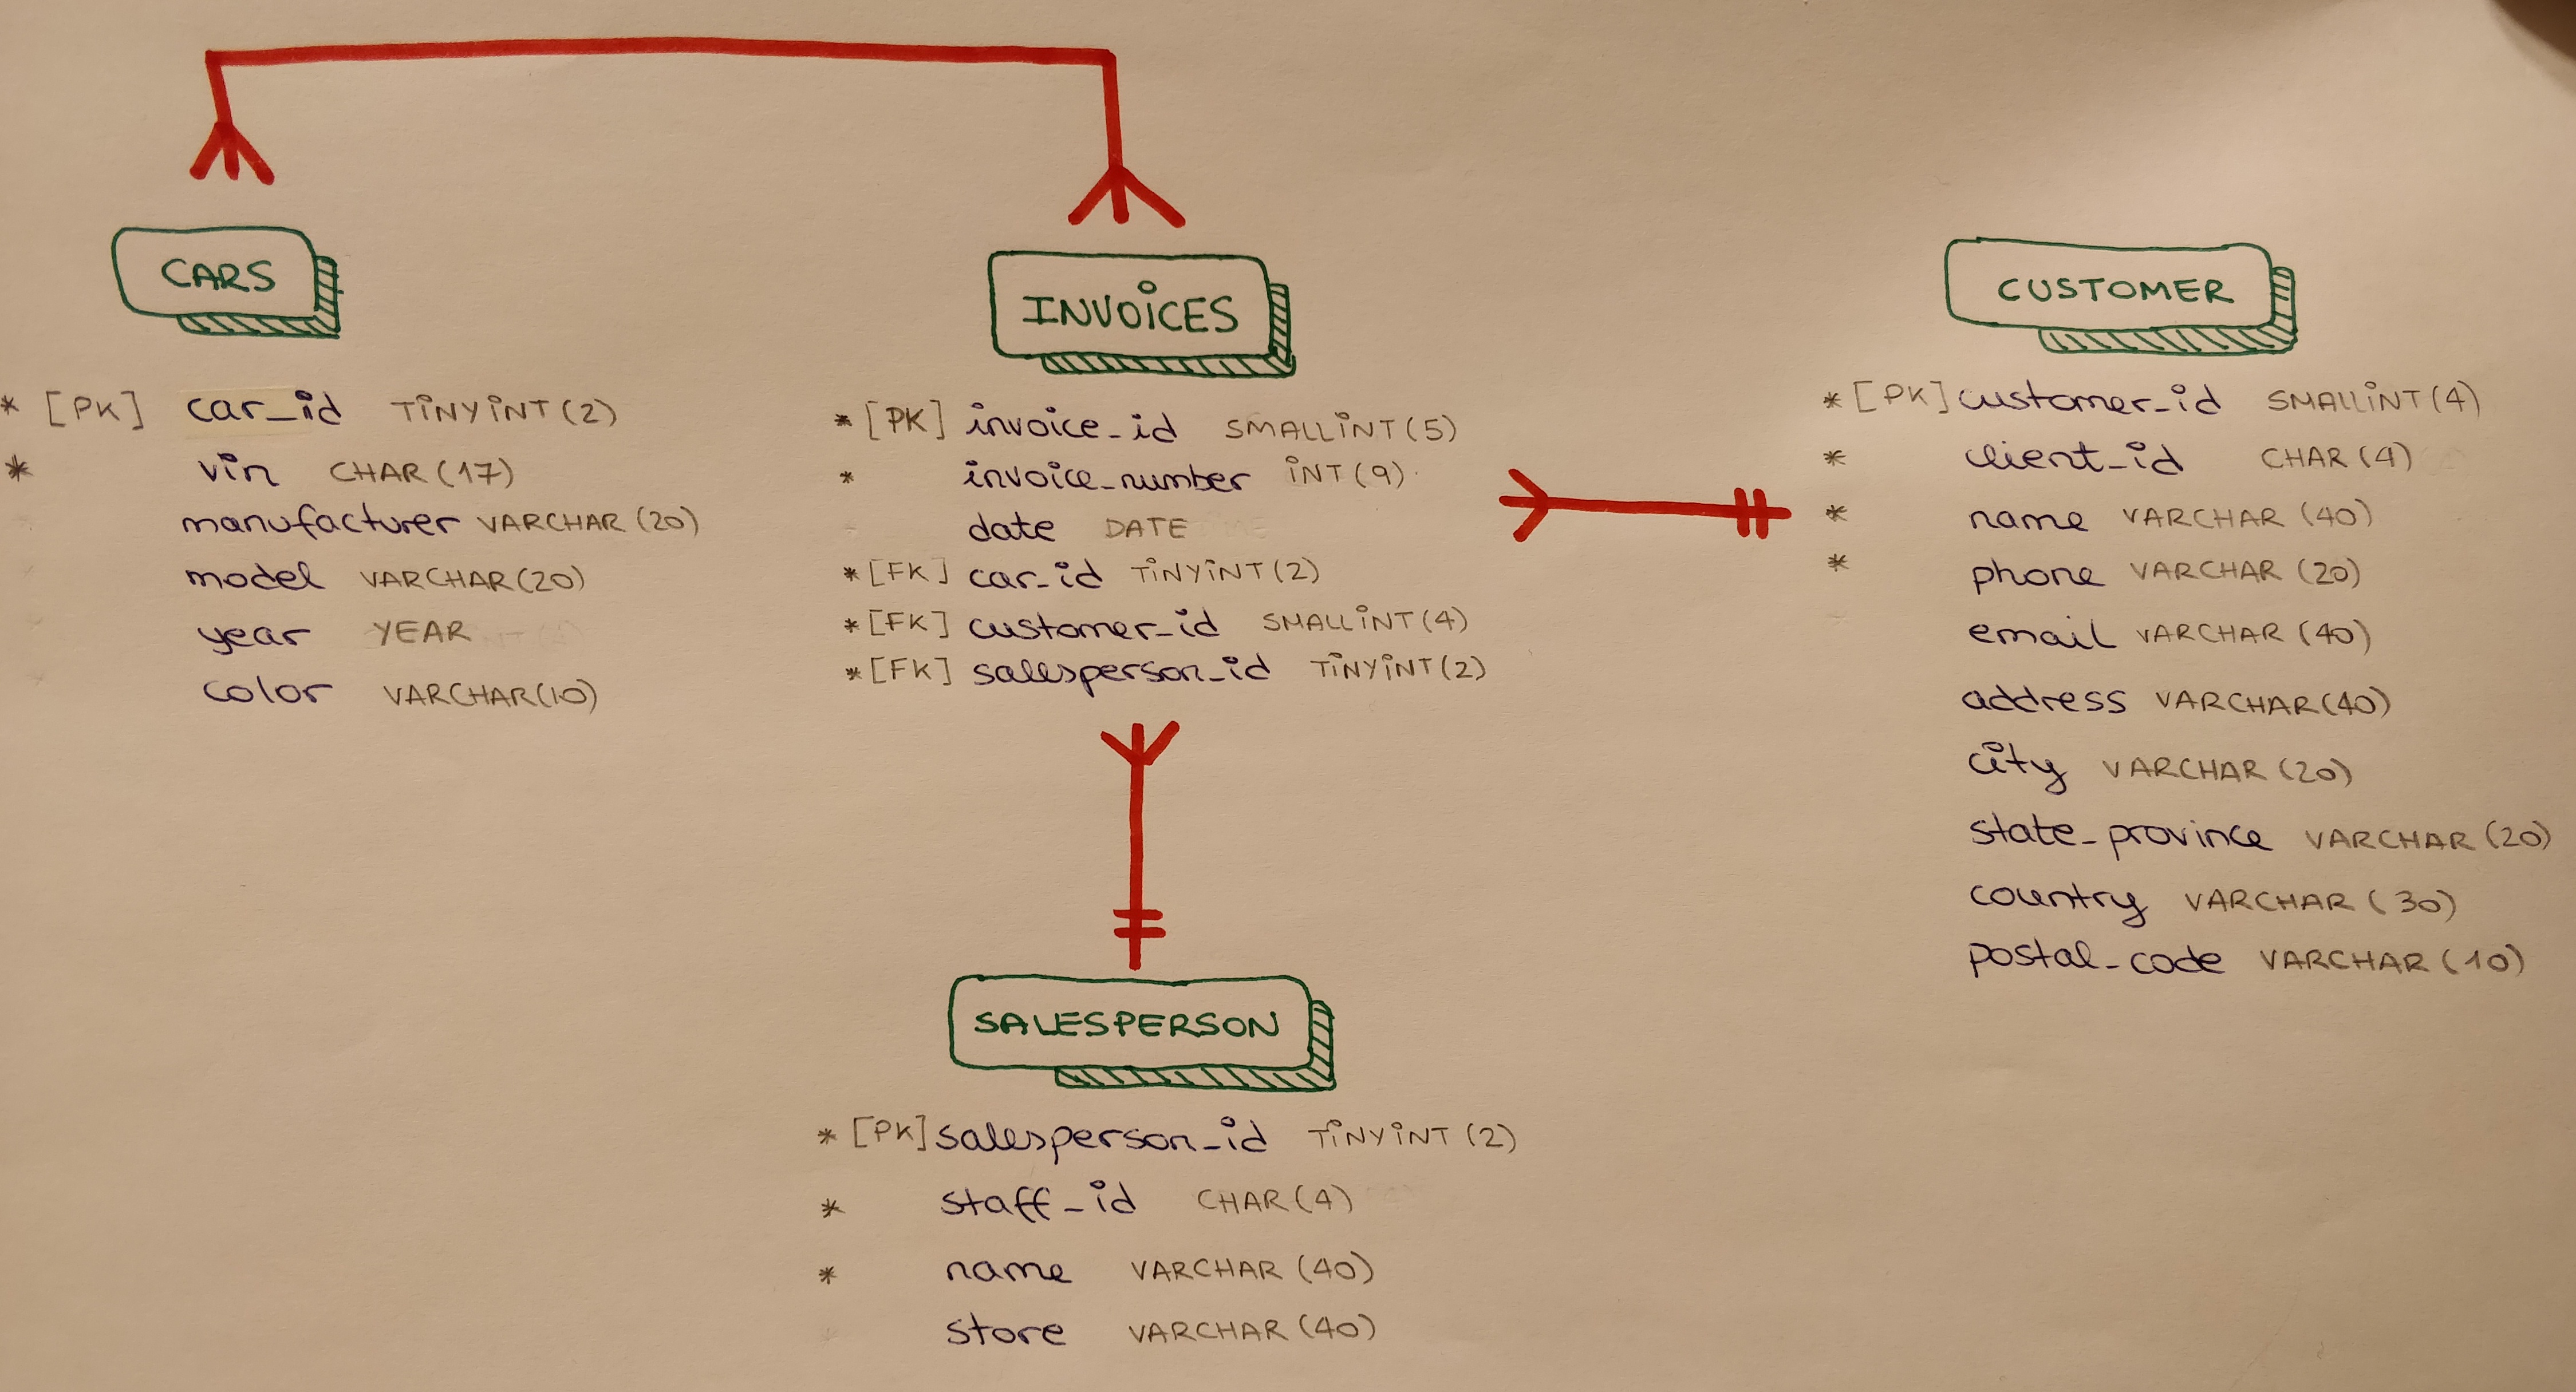 CARS
* [PK] car_id TINYINT(2)
* vin CHAR(17)
manufacturer VARCHAR(20)
model VARCHAR(20)
year YEAR
color VARCHAR(10)
INVOICES
* [PK] invoice_id SMALLINT(5)
* invoice_number INT(9)
date DATE
* [FK] car_id TINYINT(2)
* [FK] customer_id SMALLINT(4)
* [FK] salesperson_id TINYINT(2)
CUSTOMER
* [PK] customer_id SMALLINT(4)
* client_id CHAR(4)
* name VARCHAR (40)
* phone VARCHAR (20)
email VARCHAR (40)
address VARCHAR(40)
city VARCHAR (20)
state_province VARCHAR (20)
country VARCHAR (30)
postal_code VARCHAR (10)
SALESPERSON
* [PK] salesperson_id TINYINT (2)
* staff_id CHAR(4)
* name VARCHAR (40)
store VARCHAR (40)